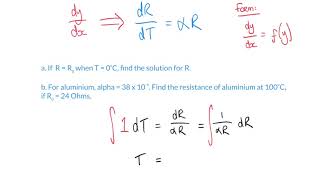 dy/dx ⟹ dR/dT = αR
form:
dy/dx = f(y)
a. If R = R₀ when T = 0°C, find the solution for R.
b. For aluminium, alpha = 38 x 10⁻. Find the resistance of aluminium at 100°C,
if R₀ = 24 Ohms.
∫ 1 dT = dR/αR = ∫ 1/αR dR
T =